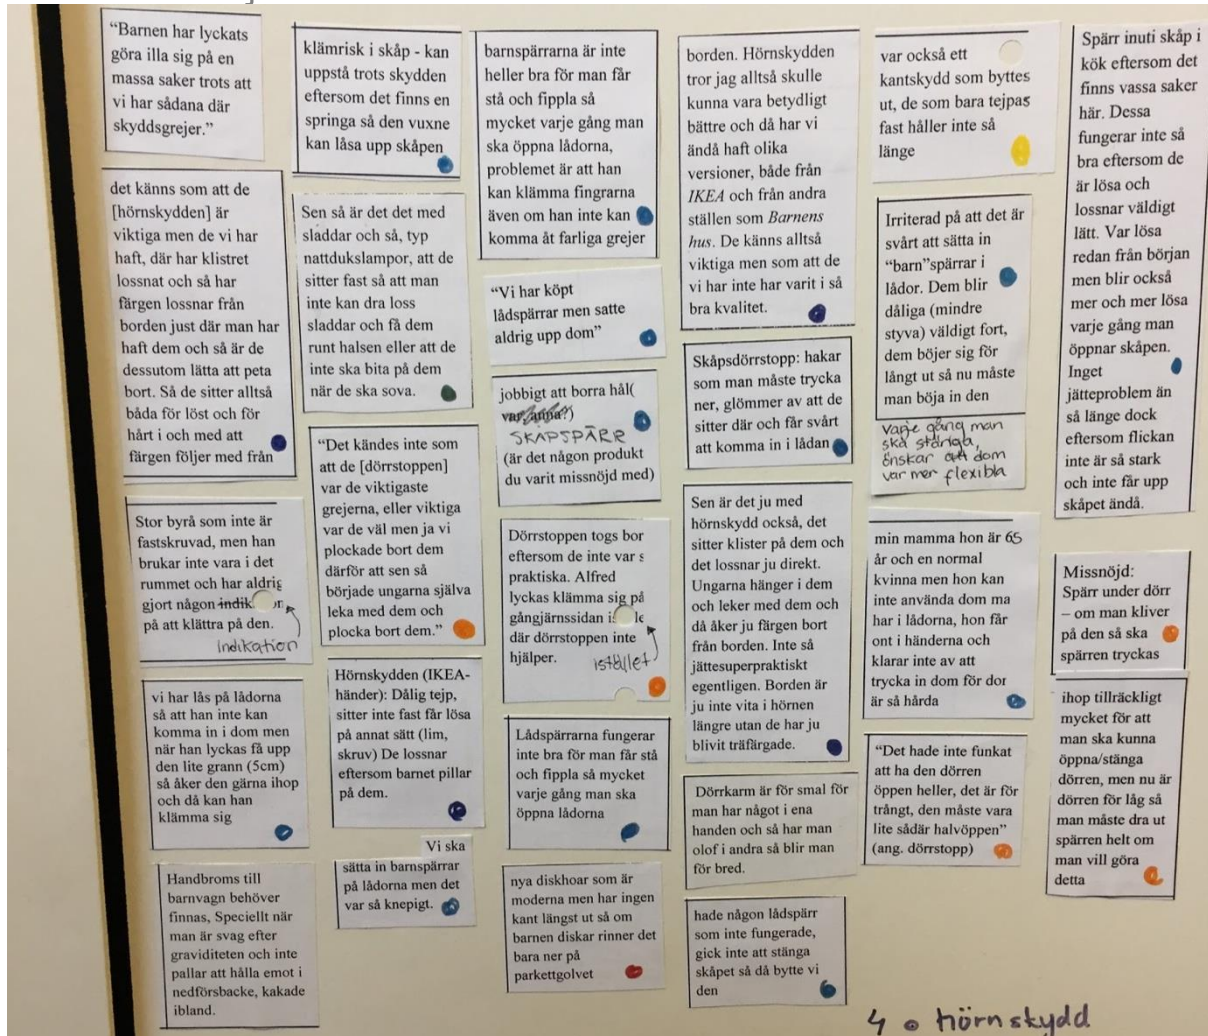 “Barnen har lyckats
göra illa sig på en
massa saker trots att
vi har sådana där
skyddsgrejer.”
det känns som att de
[hörnskydden] är
viktiga men de vi har
haft, där har klistret
lossnat och så har
färgen lossnar från
borden just där man har
haft dem och så är de
dessutom lätta att peta
bort. Så de sitter alltså
båda för löst och för
hårt i och med att
färgen följer med från
Stor byrå som inte är
fastskruvad, men han
brukar inte vara i det
rummet och har aldrig
gjort någon
på att klättra på den.
Indikation
vi har lås på lådorna
så att han inte kan
komma in i dom men
när han lyckas få upp
den lite grann (5cm)
så åker den gärna ihop
och då kan han
klämma sig
Handbroms till
barnvagn behöver
finnas, Speciellt när
man är svag efter
graviditeten och inte
pallar att hålla emot i
nedförsbacke, kakade
ibland.
klämrisk i skåp - kan
uppstå trots skydden
eftersom det finns en
springa så den vuxne
kan låsa upp skåpen
Sen så är det det med
sladdar och så, typ
nattdukslampor, att de
sitter fast så att man
inte kan dra loss
sladdar och få dem
runt halsen eller att de
inte ska bita på dem
när de ska sova.
“Det kändes inte som
att de [dörrstoppen]
var de viktigaste
grejerna, eller viktiga
var de väl men ja vi
plockade bort dem
därför att sen så
började ungarna själva
leka med dem och
plocka bort dem.”
Hörnskydden (IKEA-
händer): Dålig tejp,
sitter inte fast får lösa
på annat sätt (lim,
skruv) De lossnar
eftersom barnet pillar
på dem.
Vi ska
sätta in barnspärrar
på lådorna men det
var så knepigt.
barnspärrarna är inte
heller bra för man får
stå och fippla så
mycket varje gång man
ska öppna lådorna,
problemet är att han
kan klämma fingrarna
även om han inte kan
komma åt farliga grejer
“Vi har köpt
lådspärrar men satte
aldrig upp dom”
jobbigt att borra hål(
SKÅPSPÄRR
(är det någon produkt
du varit missnöjd med)
Dörrstoppen togs bor
eftersom de inte var s
praktiska. Alfred
lyckas klämma sig på
gångjärnssidan
där dörrstoppen inte
hjälper.
istället
Lådspärrarna fungerar
inte bra för man får stå
och fippla så mycket
varje gång man ska
öppna lådorna
nya diskhoar som är
moderna men har ingen
kant längst ut så om
barnen diskar rinner det
bara ner på
parkettgolvet
borden. Hörnskydden
tror jag alltså skulle
kunna vara betydligt
bättre och då har vi
ändå haft olika
versioner, både från
IKEA och från andra
ställen som Barnens
hus. De känns alltså
viktiga men som att de
vi har inte har varit i så
bra kvalitet.
Skåpsdörrstopp: hakar
som man måste trycka
ner, glömmer av att de
sitter där och får svårt
att komma in i lådan
Sen är det ju med
hörnskydd också, det
sitter klister på dem och
det lossnar ju direkt.
Ungarna hänger i dem
och leker med dem och
då åker ju färgen bort
från borden. Inte så
jättesuperpraktiskt
egentligen. Borden är
ju inte vita i hörnen
längre utan de har ju
blivit träfärgade.
Dörrkarm är för smal för
man har något i ena
handen och så har man
olof i andra så blir man
för bred.
hade någon lådspärr
som inte fungerade,
gick inte att stänga
skåpet så då bytte vi
den
var också ett
kantskydd som byttes
ut, de som bara tejpas
fast håller inte så
länge
Irriterad på att det är
svårt att sätta in
“barn”spärrar i
lådor. Dem blir
dåliga (mindre
styva) väldigt fort,
dem böjer sig för
långt ut så nu måste
man böja in den
varje gång man
ska stänga,
önskar att dom
var mer flexibla
min mamma hon är 65
år och en normal
kvinna men hon kan
inte använda dom ma
har i lådorna, hon får
ont i händerna och
klarar inte av att
trycka in dom för dor
är så hårda
“Det hade inte funkat
att ha den dörren
öppen heller, det är för
trångt, den måste vara
lite sådär halvöppen”
(ang. dörrstopp)
Spärr inuti skåp i
kök eftersom det
finns vassa saker
här. Dessa
fungerar inte så
bra eftersom de
är lösa och
lossnar väldigt
lätt. Var lösa
redan från början
men blir också
mer och mer lösa
varje gång man
öppnar skåpen.
Inget
jätteproblem än
så länge dock
eftersom flickan
inte är så stark
och inte får upp
skåpet ändå.
Missnöjd:
Spärr under dörr
– om man kliver
på den så ska
spärren tryckas
ihop tillräckligt
mycket för att
man ska kunna
öppna/stänga
dörren, men nu är
dörren för låg så
man måste dra ut
spärren helt om
man vill göra
detta
4 hörnskydd